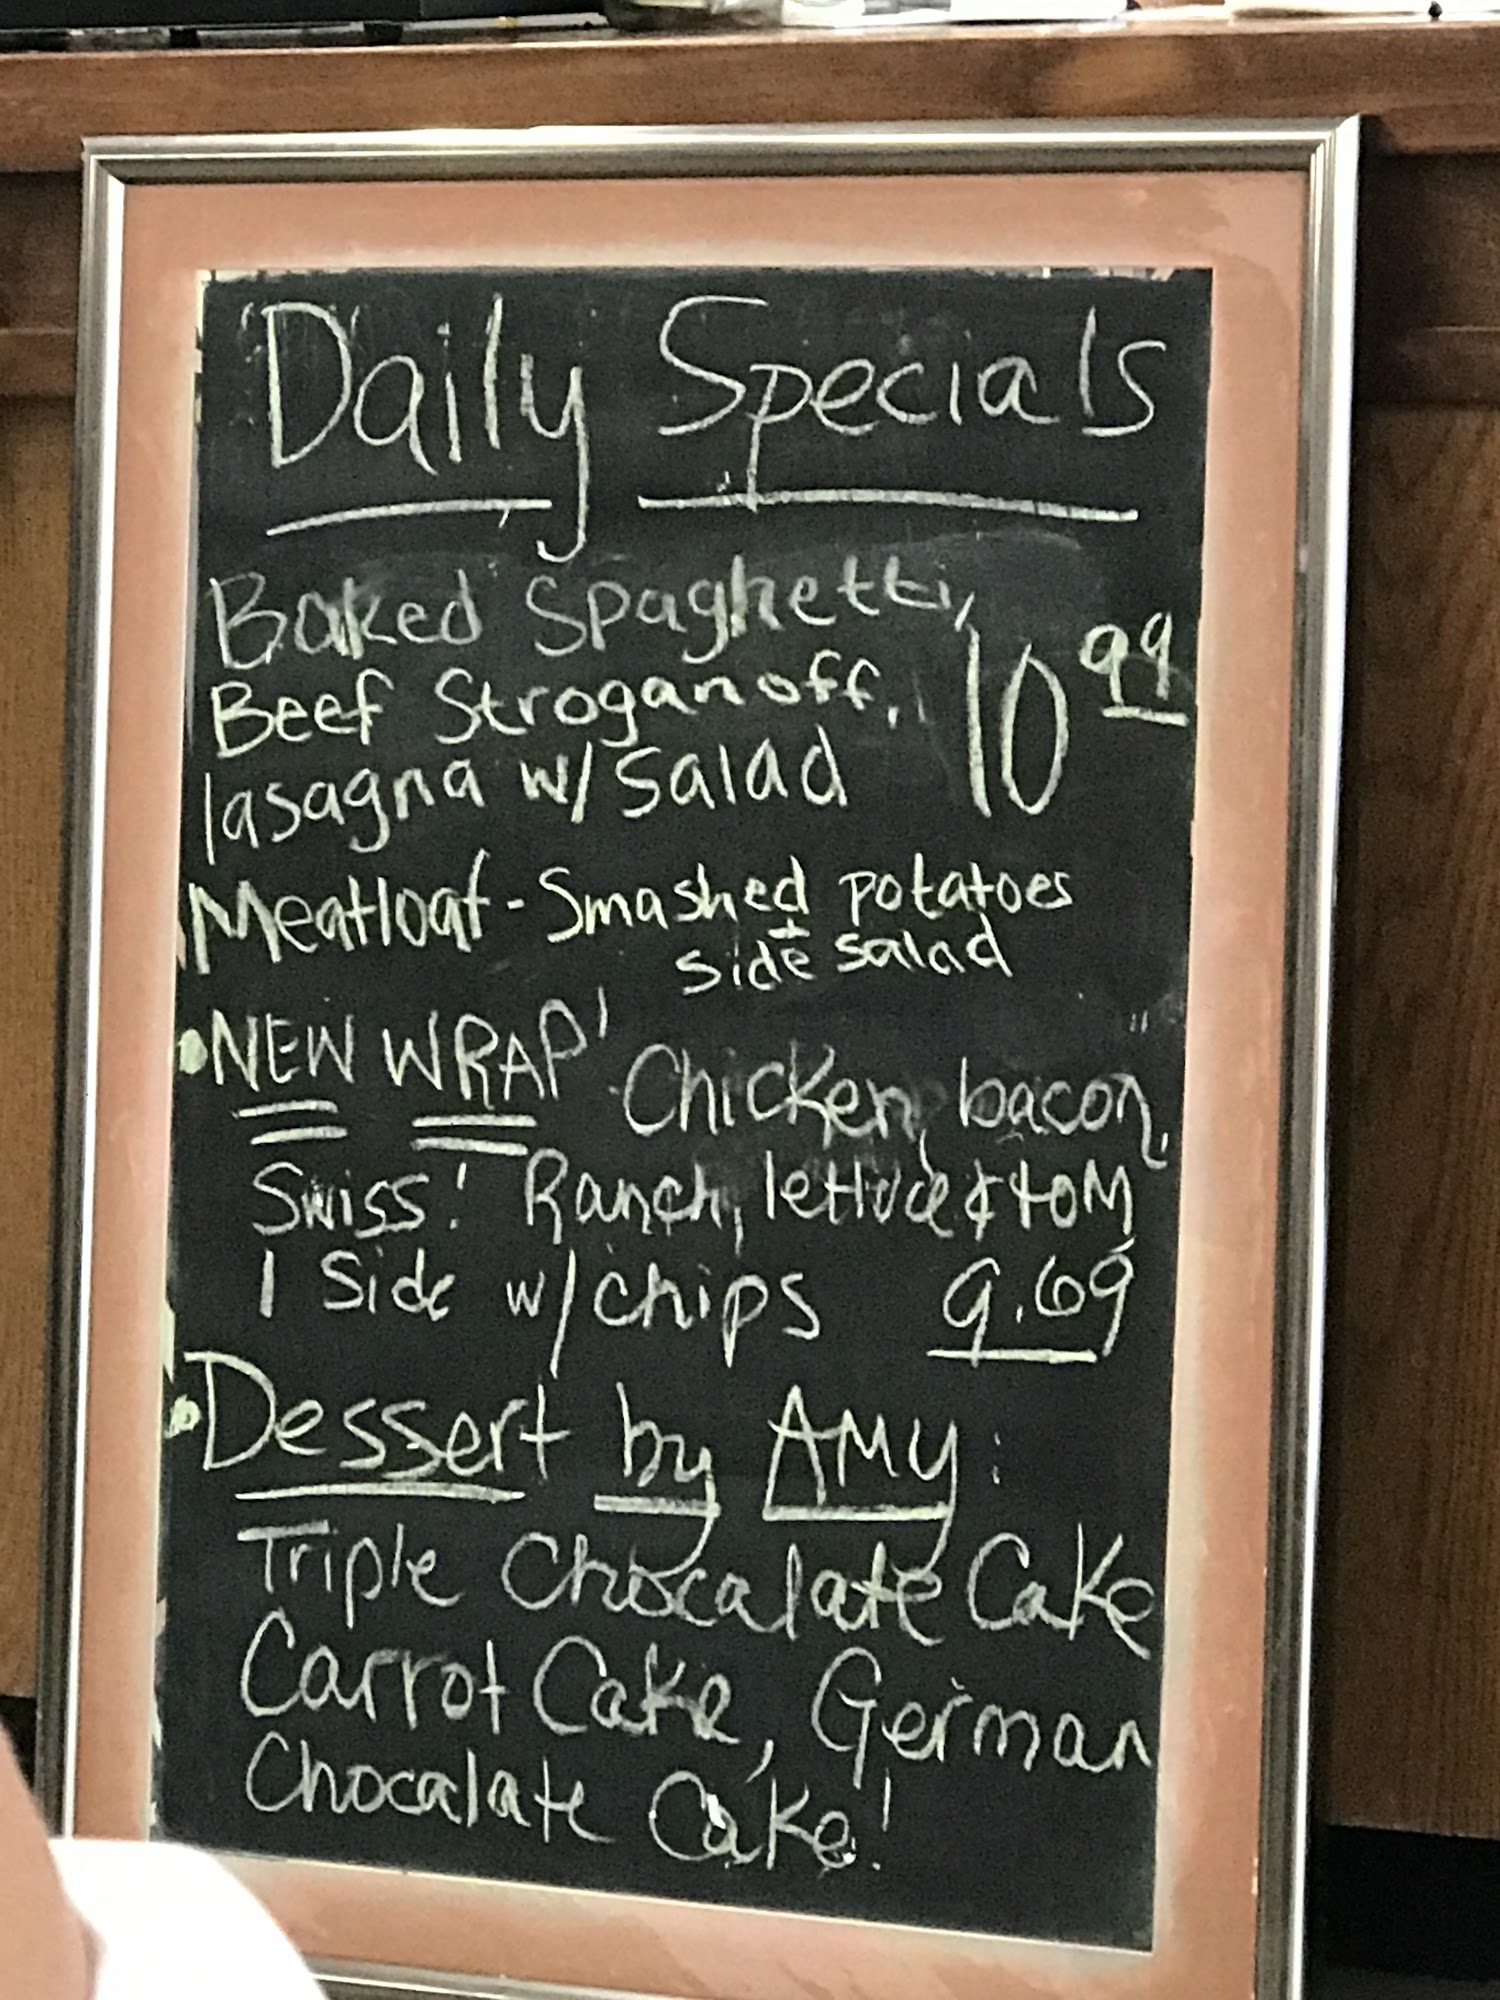 Daily Specials
Baked Spaghetti,
Beef Stroganoff,
lasagna w/ Salad 10 99
Meatloaf - Smashed potatoes
+ side salad
• NEW WRAP! Chicken, bacon,
Swiss! Ranch, lettuce & tom
1 Side w/ chips 9.69
• Dessert by AMY:
Triple Chocalate Cake
Carrot Cake, German
Chocalate Cake!